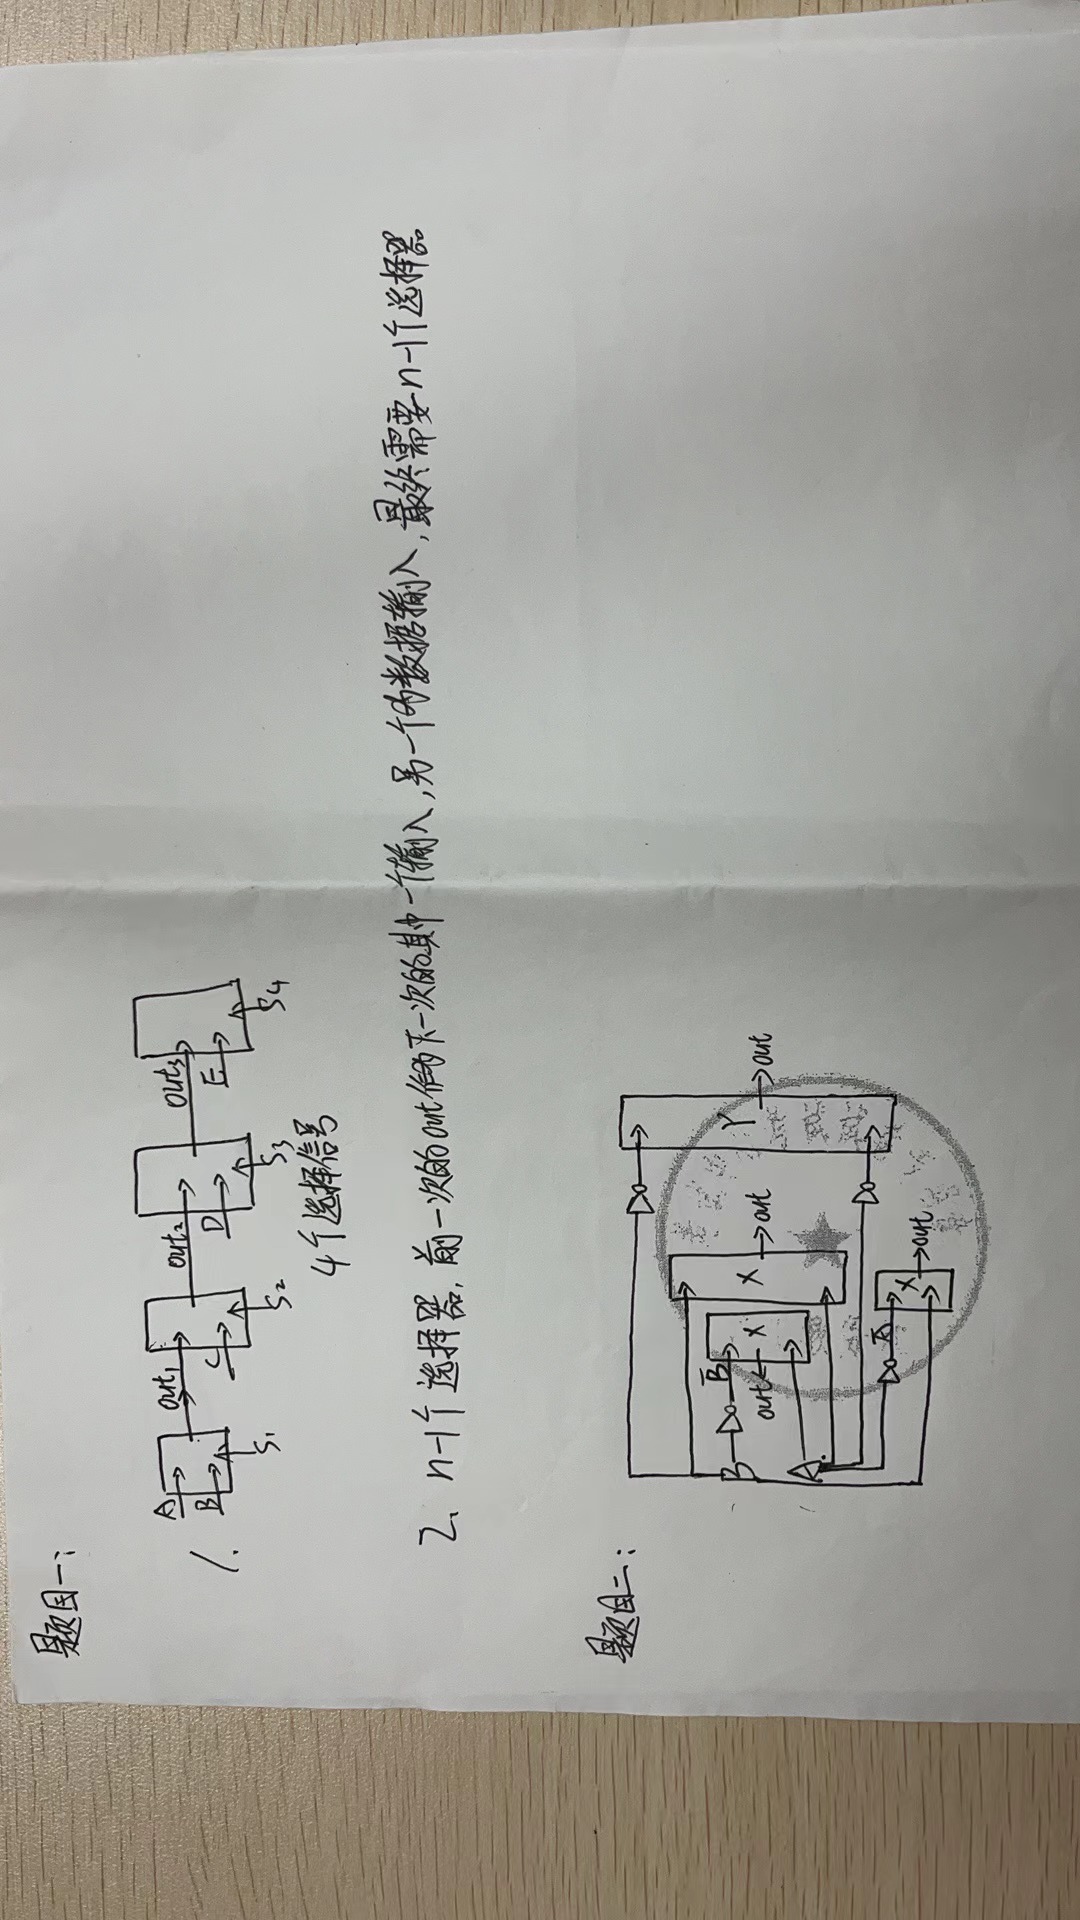 题目一:
1.
A
B
S₁
out₁
C
S₂
out₂
D
S₃
out₃
E
S₄
4个选择信号
2、n-1个选择器,前一次的out作为下一次的其中一个输入,另一个为数据输入,最终需要n-1个选择器
题目二:
B
B̅
out
X
X
out
Y
out
A
A̅
X
out